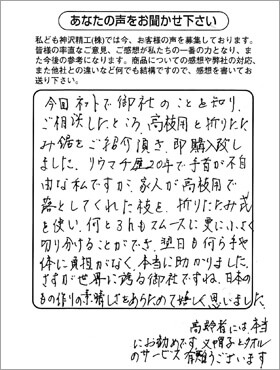 あなたの声をお聞かせ下さい
私ども神沢精工(株)では今、お客様の声を募集しております。
皆様の率直なご意見、ご感想が私たちの一番の力となり、ま
た今後の参考になります。商品についての感想や弊社の対応、
また他社との違いなど何でも結構ですので、感想を書いてお
送り下さい。
今回ネットで御社のことを知り、
ご相談したところ、高枝用と折りたた
み鋸をご紹介頂き、即購入致し
ました。リウマチ歴20年で手首が不自
由な私ですが、家人が高枝用で
落としてくれた枝を、折りたたみ式
を使い、何と3hもスムースに更に小さく
切り分けることができ、翌日も何ら手や
体に負担がなく、本当に助かりました。
さすが世界に誇る御社ですね。日本の
もの作りの素晴しさをあらためて嬉しく思いました。
高齢者には、本当
にお勧めです。又帽子とタオル
のサービス有難うございます